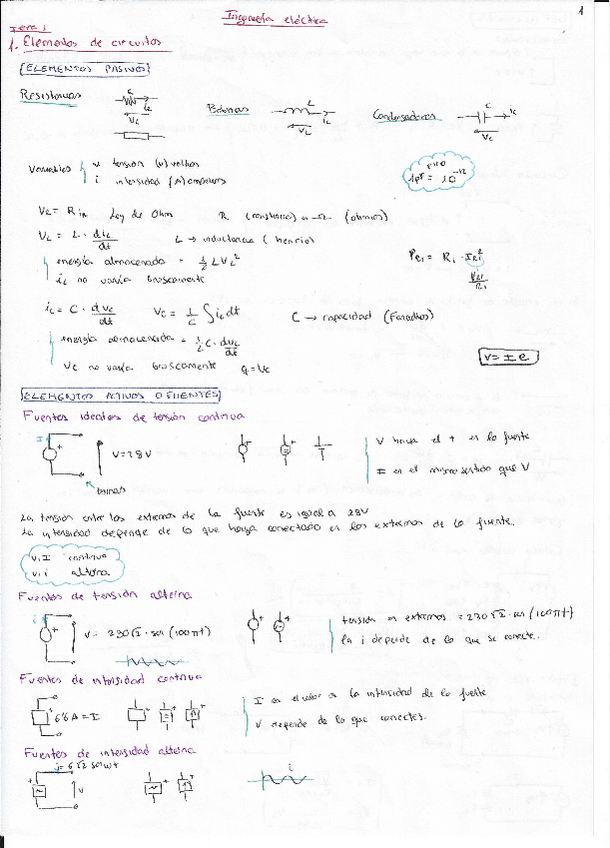 1
Ingeniería eléctrica
Tema 1
1. Elementos de circuitos
ELEMENTOS PASIVOS
Resistencias
Bobinas
L
Condensadores
C
iL
VL
ic
Vc
Variables
v tensión (v) voltios
i intensidad (A) amperios
pico
1pF = 10⁻¹²
Ley de Ohm
R (constante) en Ω (ohmios)
VL = L · diL/dt
L → inductancia (henrio)
energía almacenada = 1/2 L VL²
iL no varía bruscamente
ic = C · dvc/dt
Vc = 1/C ∫ ic dt
C → capacidad (Faradios)
energía almacenada = 1/2 C · dvc/dt
Vc no varía bruscamente
V = I R
ELEMENTOS ACTIVOS O FUENTES
Fuentes ideales de tensión continua
V = 28 V
bornas
V hacia el + en la fuente
I en el mismo sentido que V
La tensión entre los extremos de la fuente es igual a 28V
La intensidad depende de lo que haya conectado en los extremos de la fuente.
V, I continua
v, i alterna
Fuentes de tensión alterna
v = 230√2 · sen (100πt)
tensión en extremos = 230√2 · sen (100πt)
la i depende de lo que se conecte.
Fuentes de intensidad continua
6'6 A = I
I es el valor de la intensidad de la fuente
V depende de lo que conectes.
Fuentes de intensidad alterna
i = 6√2 sen ωt
v
i